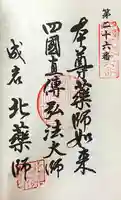 第二十六番
本尊薬師如来
四國直傳弘法大师
成君 北薬师